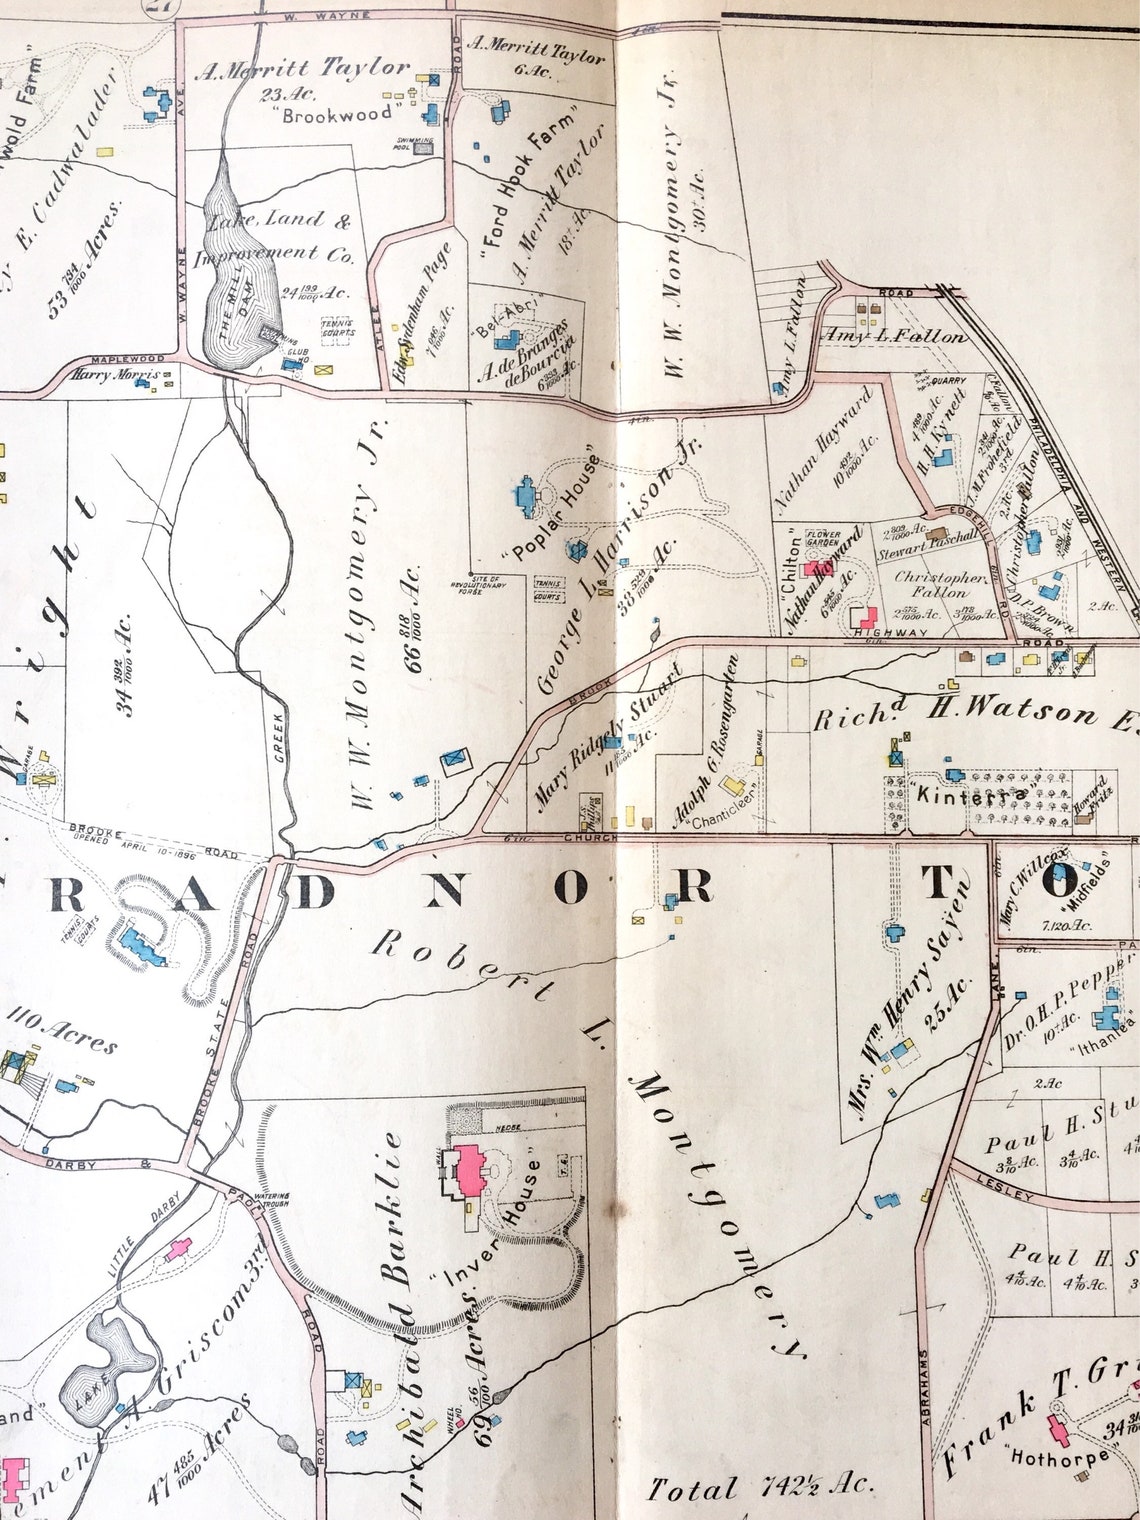 27
W. WAYNE
4in.
wold Farm"
y E. Cadwalader
53 794/1000 Acres.
AVE.
W. WAYNE
A. Merritt Taylor
23 Ac.
"Brookwood"
SWIMMING
POOL
ROAD
A. Merritt Taylor
6 Ac.
"Ford Hook Farm"
A. Merritt Taylor
18+ Ac.
W. W. Montgomery Jr.
30+ Ac.
Lake, Land &
Improvement Co.
24 199/1000 Ac.
THE MILL
DAM
TENNIS
COURTS
CLUB
HO.
ATLEE
Edw. Sydenham Page
7 046/1000 Ac.
"Bel-Abri"
A. de Branges
de Bourcia
6 393/1000 Ac.
Amy L. Fallon
ROAD
Amy L. Fallon
MAPLEWOOD
Harry Morris
4in.
QUARRY
Nathan Hayward
10 492/1000 Ac.
H. H. Kynett
4 489/1000 Ac.
Fallon
J. M. Frohefield
3rd
PHILADELPHIA AND WESTERN
Wright
34 392/1000 Ac.
W. W. Montgomery Jr.
66 818/1000 Ac.
"Poplar House"
George L. Harrison Jr.
38 529/1000 Ac.
SITE OF
REVOLUTIONARY
FORGE
TENNIS
COURTS
"Chilton"
FLOWER
GARDEN
Nathan Hayward
6 945/1000 Ac.
2 809/1000 Ac.
Stewart Paschall
EDGEHILL
6in.
RD
2 Ac.
Christopher Fallon
Christopher
Fallon
2 575/1000 Ac.
3 178/1000 Ac.
D. P. Brown
2 Ac.
HIGHWAY
6in.
ROAD
CREEK
BROOK
Mary Ridgely Stuart
Adolph G. Rosengarten
"Chanticleer"
GARAGE
Rich.d H. Watson Es
"Kinterra"
Howard
Fritz
GARAGE
J.S.
Phillips
BROOKE ROAD
OPENED APRIL 10-1896
6in.
CHURCH
R
RADNOR TO
TENNIS
COURTS
Robert L. Montgomery
Total 742½ Ac.
110 Acres
BROOKE STATE ROAD
Mrs. Wm Henry Sayen
25 Ac.
6in.
Mary C. Willcox
"Midfields"
7.120 Ac.
6in.
PA
LANE
Dr. O. H. P. Pepper
10+ Ac.
"Ithanlea"
2 Ac
Paul H. Stu
3 8/10 Ac.
3 4/10 Ac.
LESLEY
Paul H. S
4 4/10 Ac.
4 4/10 Ac.
DARBY & PAOLI ROAD
ROAD
WATERING
TROUGH
LITTLE DARBY
HEDGE
WALL
T.C.
"Inver House"
Archibald Barklie
69 56/100 Acres.
WHEEL
HO.
LAKE
and"
ement A. Griscom 3rd
47 485/1000 Acres
ABRAHAMS
Frank T. Gri
"Hothorpe"